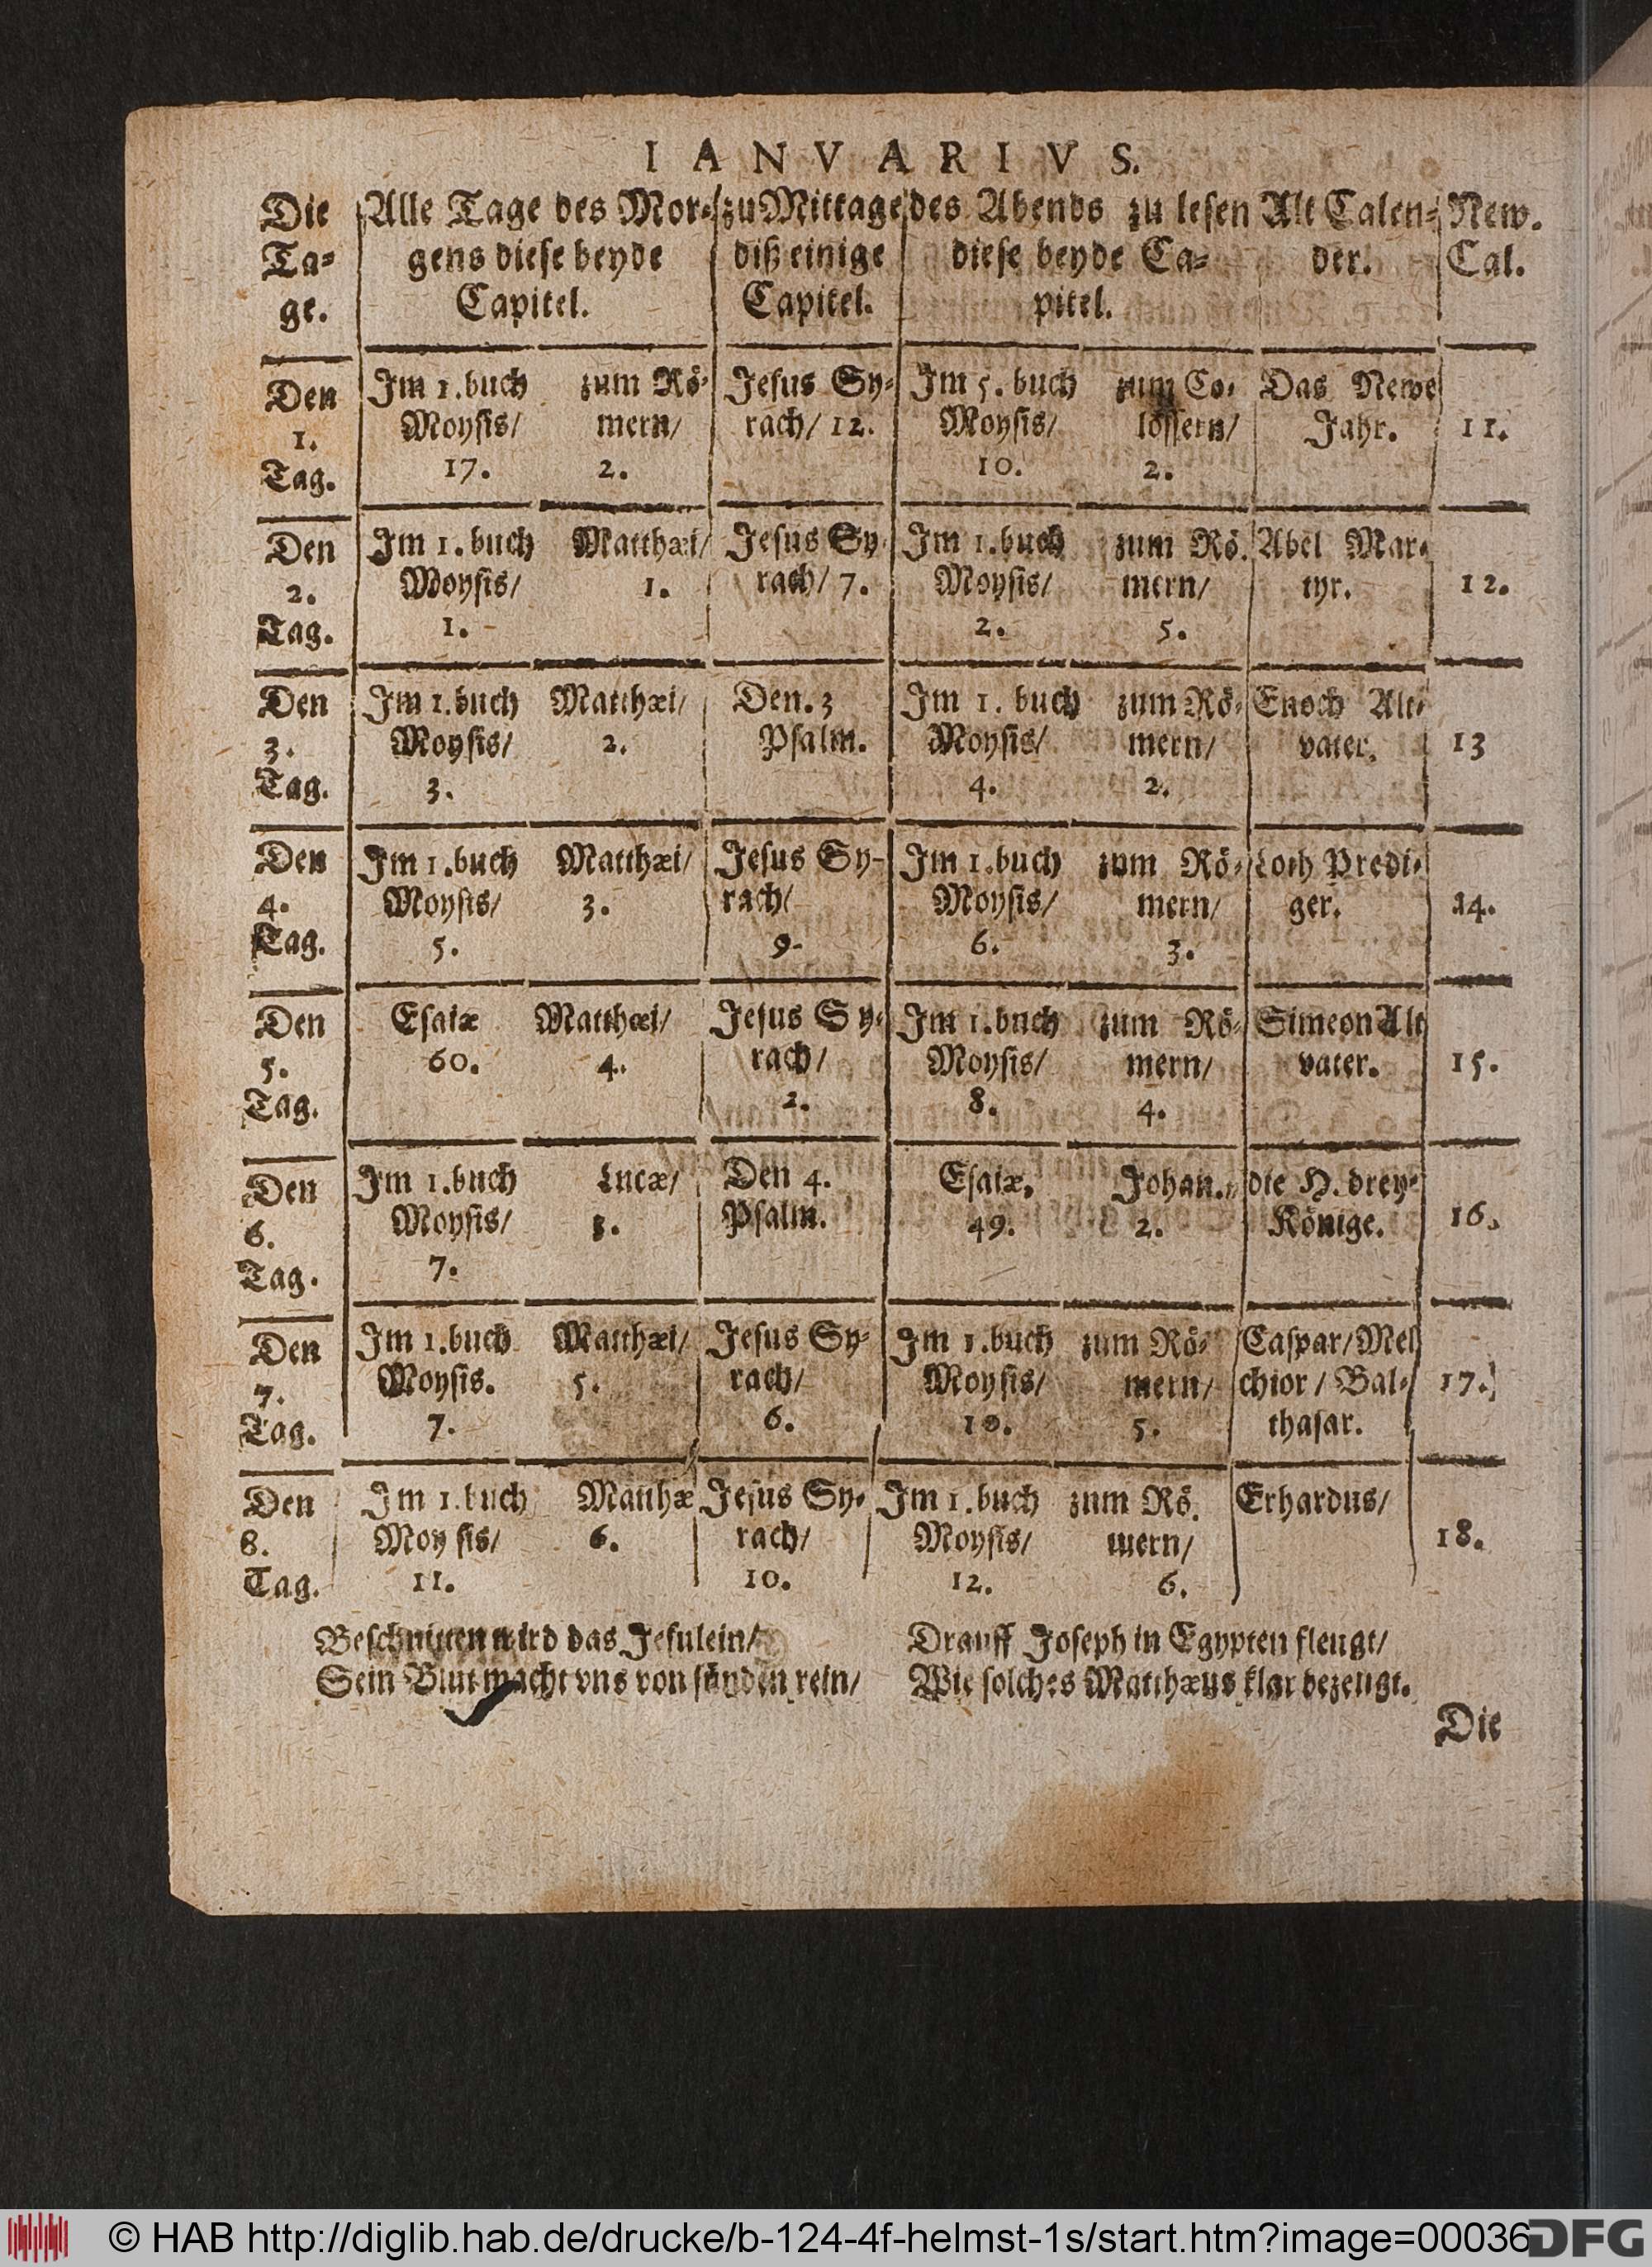 IANVARIVS.
Die Alle Tage des Mor⸗ zu Mittage des Abends zu lesen Alt Calen⸗ New.
Ta⸗ gens diese beyde diß einige diese beyde Ca⸗ der. Cal.
ge. Capitel. Capitel. pitel.
Den Im 1. buch zum Rö⸗ Jesus Sy⸗ Im 5. buch zum Co⸗ Das Newe
1. Moysis/ mern/ rach/ 12. Moysis/ lossern/ Jahr. 11.
Tag. 17. 2. 10. 2.
Den Im 1. buch Matthæi/ Jesus Sy⸗ Im 1. buch zum Rö. Abel Mar⸗
2. Moysis/ 1. rach/ 7. Moysis/ mern/ tyr. 12.
Tag. 1. 2. 5.
Den Im 1. buch Matthæi/ Den. 3 Im 1. buch zum Rö⸗ Enoch Alt⸗
3. Moysis/ 2. Psalm. Moysis/ mern/ vater. 13
Tag. 3. 4. 2.
Den Im 1. buch Matthæi/ Jesus Sy⸗ Im 1. buch zum Rö⸗ Loth Predi⸗
4. Moysis/ 3. rach/ Moysis/ mern/ ger. 14.
Tag. 5. 9. 6. 3.
Den Esaiæ Matthæi/ Jesus Sy⸗ Im 1. buch zum Rö⸗ Simeon Alt
5. 60. 4. rach/ Moysis/ mern/ vater. 15.
Tag. 2. 8. 4.
Den Im 1. buch Lucæ/ Den 4. Esaiæ. Johan. die H. drey⸗
6. Moysis/ Psalm. 49. 2. Könige. 16.
Tag. 7.
Den Im 1. buch Matthæi/ Jesus Sy⸗ Im 1. buch zum Rö⸗ Caspar/ Mel
7. Moysis. 5. rach/ Moysis/ mern/ chior/ Bal⸗ 17.
Tag. 7. 6. 10. 5. thasar.
Den Im 1. buch Matthæ Jesus Sy⸗ Im 1. buch zum Rö. Erhardus/
8. Moysis/ 6. rach/ Moysis/ mern/ 18.
Tag. 11. 10. 12. 6.
Beschnitten wird das Jesulein/
Sein Blut macht vns von sünden rein/
Drauff Joseph in Egypten fleugt/
Wie solches Matthæus klar bezeugt.
Die
© HAB http://diglib.hab.de/drucke/b-124-4f-helmst-1s/start.htm?image=00036
DFG